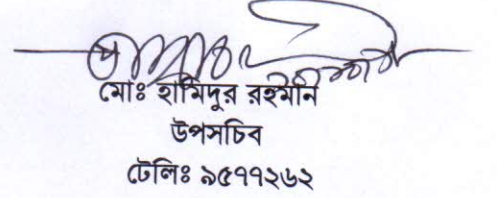 মোঃ হামিদুর রহমান
উপসচিব
টেলিঃ ৯৫৭৭২৬২